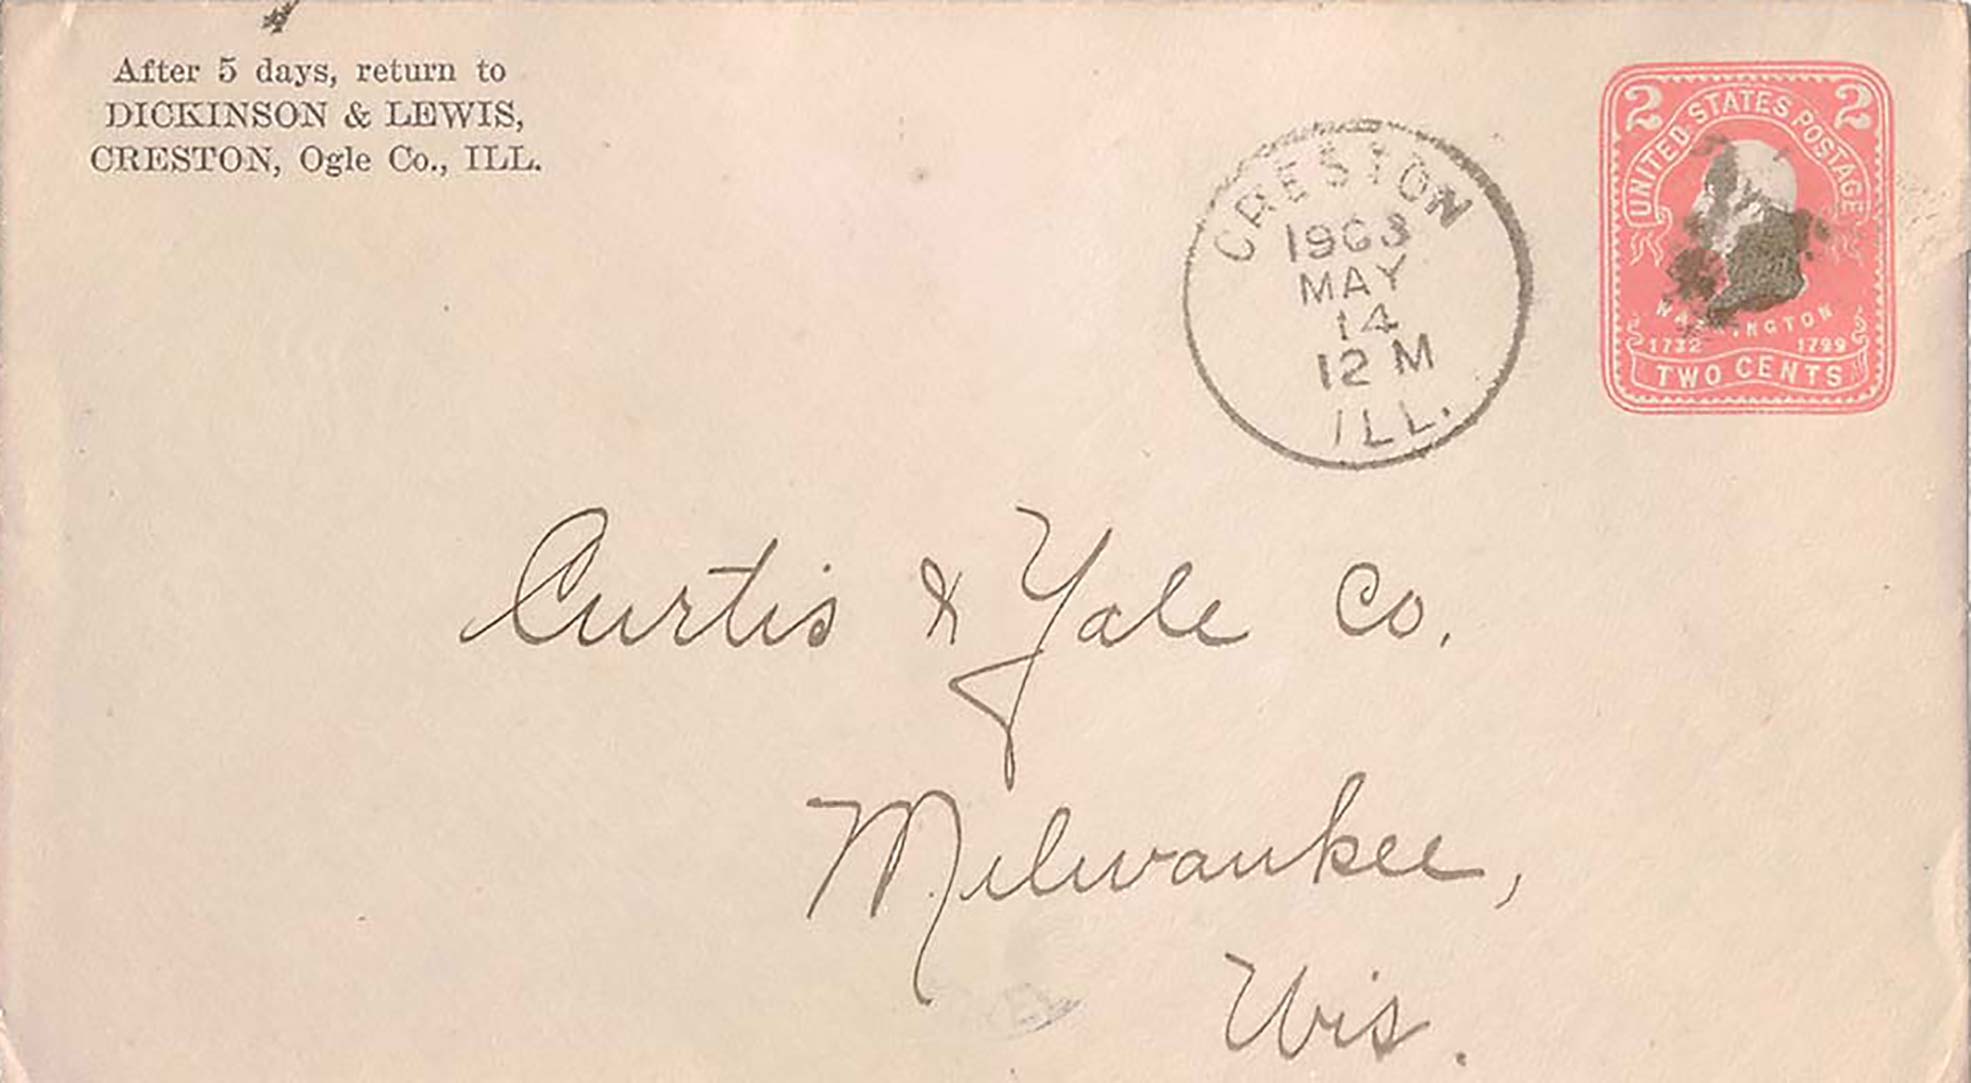 After 5 days, return to
DICKINSON & LEWIS,
CRESTON, Ogle Co., ILL.
CRESTON
1903
MAY
14
12 M
ILL.
2 2
UNITED STATES POSTAGE
WASHINGTON
1732 1799
TWO CENTS
Curtis & Yale Co.
Milwaukee,
Wis.